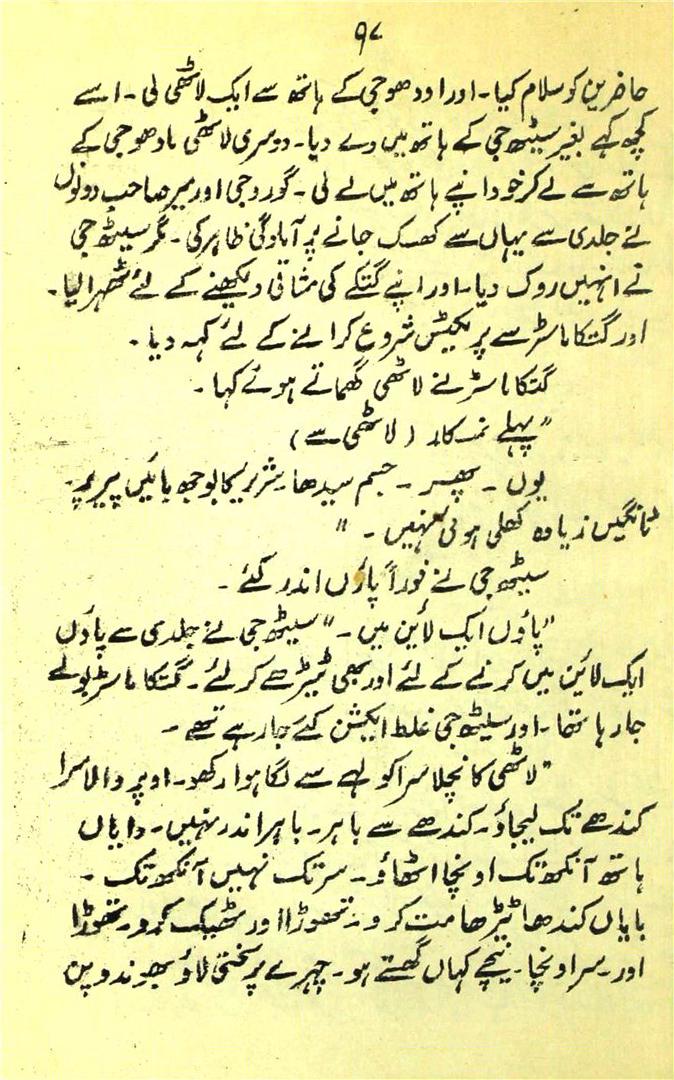 ۹۷
حاضرین کو سلام کیا۔ اور اودھوجی کے ہاتھ سے ایک لاٹھی لی۔ اسے
کچھ کہے بغیر سیٹھ جی کے ہاتھ میں دے دیا۔ دوسری لاٹھی مادھوجی کے
ہاتھ سے لے کر خود اپنے ہاتھ میں لے لی۔ گوروجی اور میر صاحب دونوں
نے جلدی سے یہاں سے کھسک جانے پر آمادگی ظاہر کی۔ مگر سیٹھ جی
نے انہیں روک دیا۔ اور اپنے گتکے کی مشاقی دیکھنے کے لئے ٹھہرا لیا۔
اور گتکا ماسٹر سے پریکٹس شروع کرانے کے لئے کہہ دیا۔
گتکا ماسٹر نے لاٹھی گھماتے ہوئے کہا۔
"پہلے نمسکار (لاٹھی سے)
یوں۔ پھر۔ جسم سیدھا۔ شریر کا بوجھ بائیں پیر پر۔
ٹانگیں زیادہ کھلی ہوئی نہیں۔"
سیٹھ جی نے فوراً پاؤں اندر کئے۔
"پاؤں ایک لائین میں۔" سیٹھ جی نے جلدی سے پاؤں
ایک لائین میں کرنے کے لئے اور بھی ٹیڑھے کر لئے۔ گتکا ماسٹر بولے
جا رہا تھا۔ اور سیٹھ جی غلط ایکشن کئے جا رہے تھے۔
"لاٹھی کا نچلا سرا کولہے سے لگا ہوا رکھو۔ اوپر والا سرا
کندھے تک لیجاؤ۔ کندھے سے باہر۔ باہر اندر نہیں۔ دایاں
ہاتھ آنکھ تک اونچا اٹھاؤ۔ سر تک نہیں آنکھ تک۔
بایاں کندھا ٹیڑھا مت کرو۔ تھوڑا اور ٹھیک کرو۔ تھوڑا
اور۔ سر اونچا۔ نیچے کہاں گھستے ہو۔ چہرے پر سختی لاؤ بھوندو پن